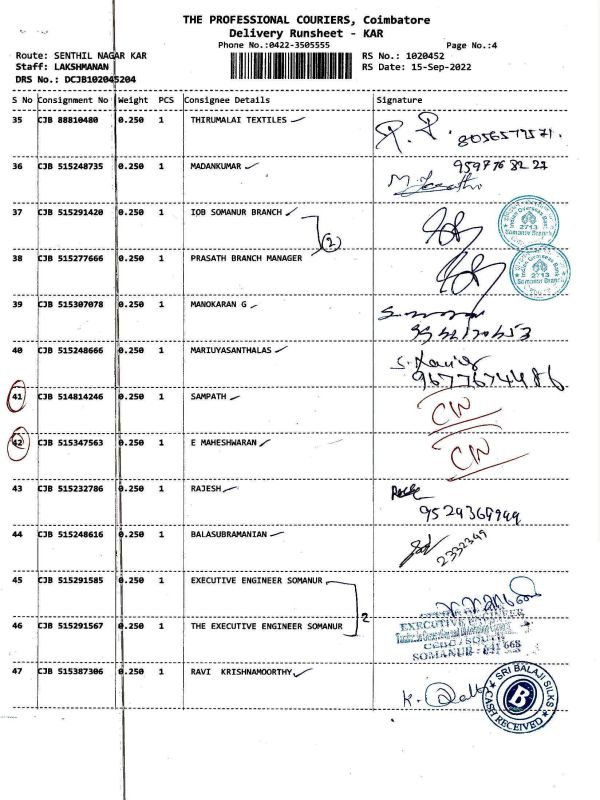 THE PROFESSIONAL COURIERS, Coimbatore
Delivery Runsheet - KAR
Phone No.:0422-3505555 Page No.:4
Route: SENTHIL NAGAR KAR RS No.: 1020452
Staff: LAKSHMANAN RS Date: 15-Sep-2022
DRS No.: DCJB102045204
S No Consignment No Weight PCS Consignee Details Signature
35 CJB 88810480 0.250 1 THIRUMALAI TEXTILES
36 CJB 515248735 0.250 1 MADANKUMAR 9597768227
37 CJB 515291420 0.250 1 IOB SOMANUR BRANCH
2
Indian Overseas Bank
2713
Somanur Branch
38 CJB 515277666 0.250 1 PRASATH BRANCH MANAGER
Indian Overseas Bank
2713
Somanur Branch
39 CJB 515307078 0.250 1 MANOKARAN G
40 CJB 515248666 0.250 1 MARIUYASANTHALAS S. Xavier
9677674486
41 CJB 514814246 0.250 1 SAMPATH
42 CJB 515347563 0.250 1 E MAHESHWARAN
43 CJB 515232786 0.250 1 RAJESH
9524369949
44 CJB 515248616 0.250 1 BALASUBRAMANIAN
2332349
45 CJB 515291585 0.250 1 EXECUTIVE ENGINEER SOMANUR
2
46 CJB 515291567 0.250 1 THE EXECUTIVE ENGINEER SOMANUR
EXECUTIVE ENGINEER
SOMANUR - 641 668
47 CJB 515387306 0.250 1 RAVI KRISHNAMOORTHY
SRI BALAJI SILKS
B
CASH RECEIVED